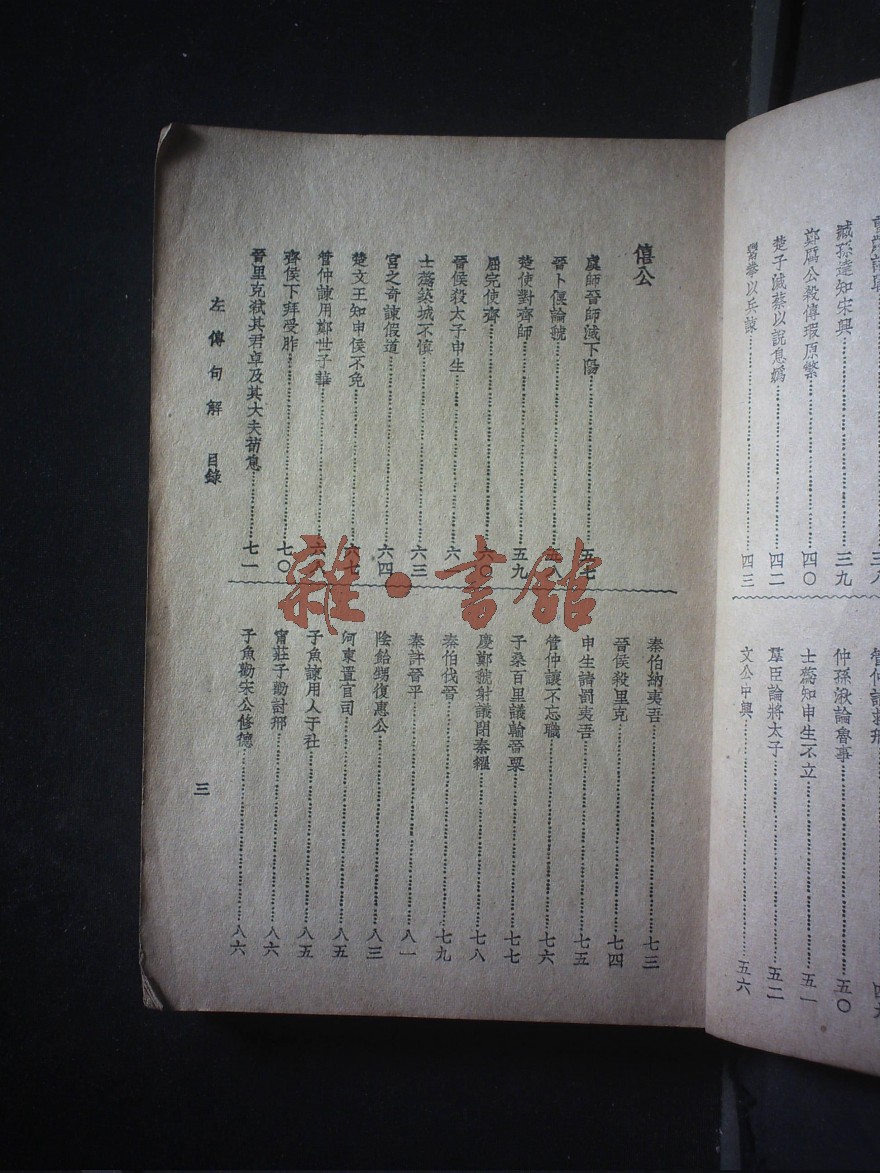 臧孫達知宋興…三九
鄭厲公殺傅瑕原繁…四〇
楚子滅蔡以說息媯…四二
鬻拳以兵諫…四三
仲孫湫論魯事…五〇
士蒍知申生不立…五一
羣臣論將太子…五二
文公中興…五六
僖公
虞師晉師滅下陽…五七
晉卜偃論虢…五八
楚使對齊師…五九
屈完使齊…六〇
晉侯殺太子申生…六
士蒍築城不慎…六三
宮之奇諫假道…六四
楚文王知申侯不免…六七
管仲諫用鄭世子華…六八
齊侯下拜受胙…七〇
晉里克弒其君卓及其大夫荀息…七一
秦伯納夷吾…七三
晉侯殺里克…七四
申生請罰夷吾…七五
管仲讓不忘職…七六
子桑百里議輸晉粟…七七
慶鄭虢射議閉秦糴…七八
秦伯伐晉…七九
秦許晉平…八一
陰飴甥復惠公…八三
河東置官司…八五
子魚諫用人于社…八五
甯莊子勸討邢…八六
子魚勸宋公修德…八六
左傳句解 目錄
三
雜·書館